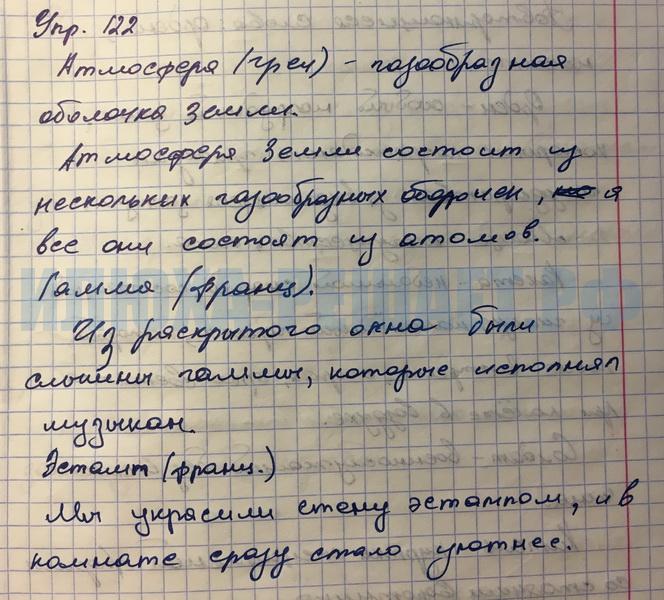 Упр. 122
Атмосфера (грец) - газообразная
оболочка Земли.
Атмосфера Земли состоит из
нескольких газообразных оболочек, а
все они состоят из атомов.
ИЛЮХА-РЕШАЕТ.РФ
Гамма (франц).
Из раскрытого окна были
слышны гаммы, которые исполнял
музыкан.
Эстамп (франц.)
Мы украсили стену эстампом, и в
комнате сразу стало уютнее.